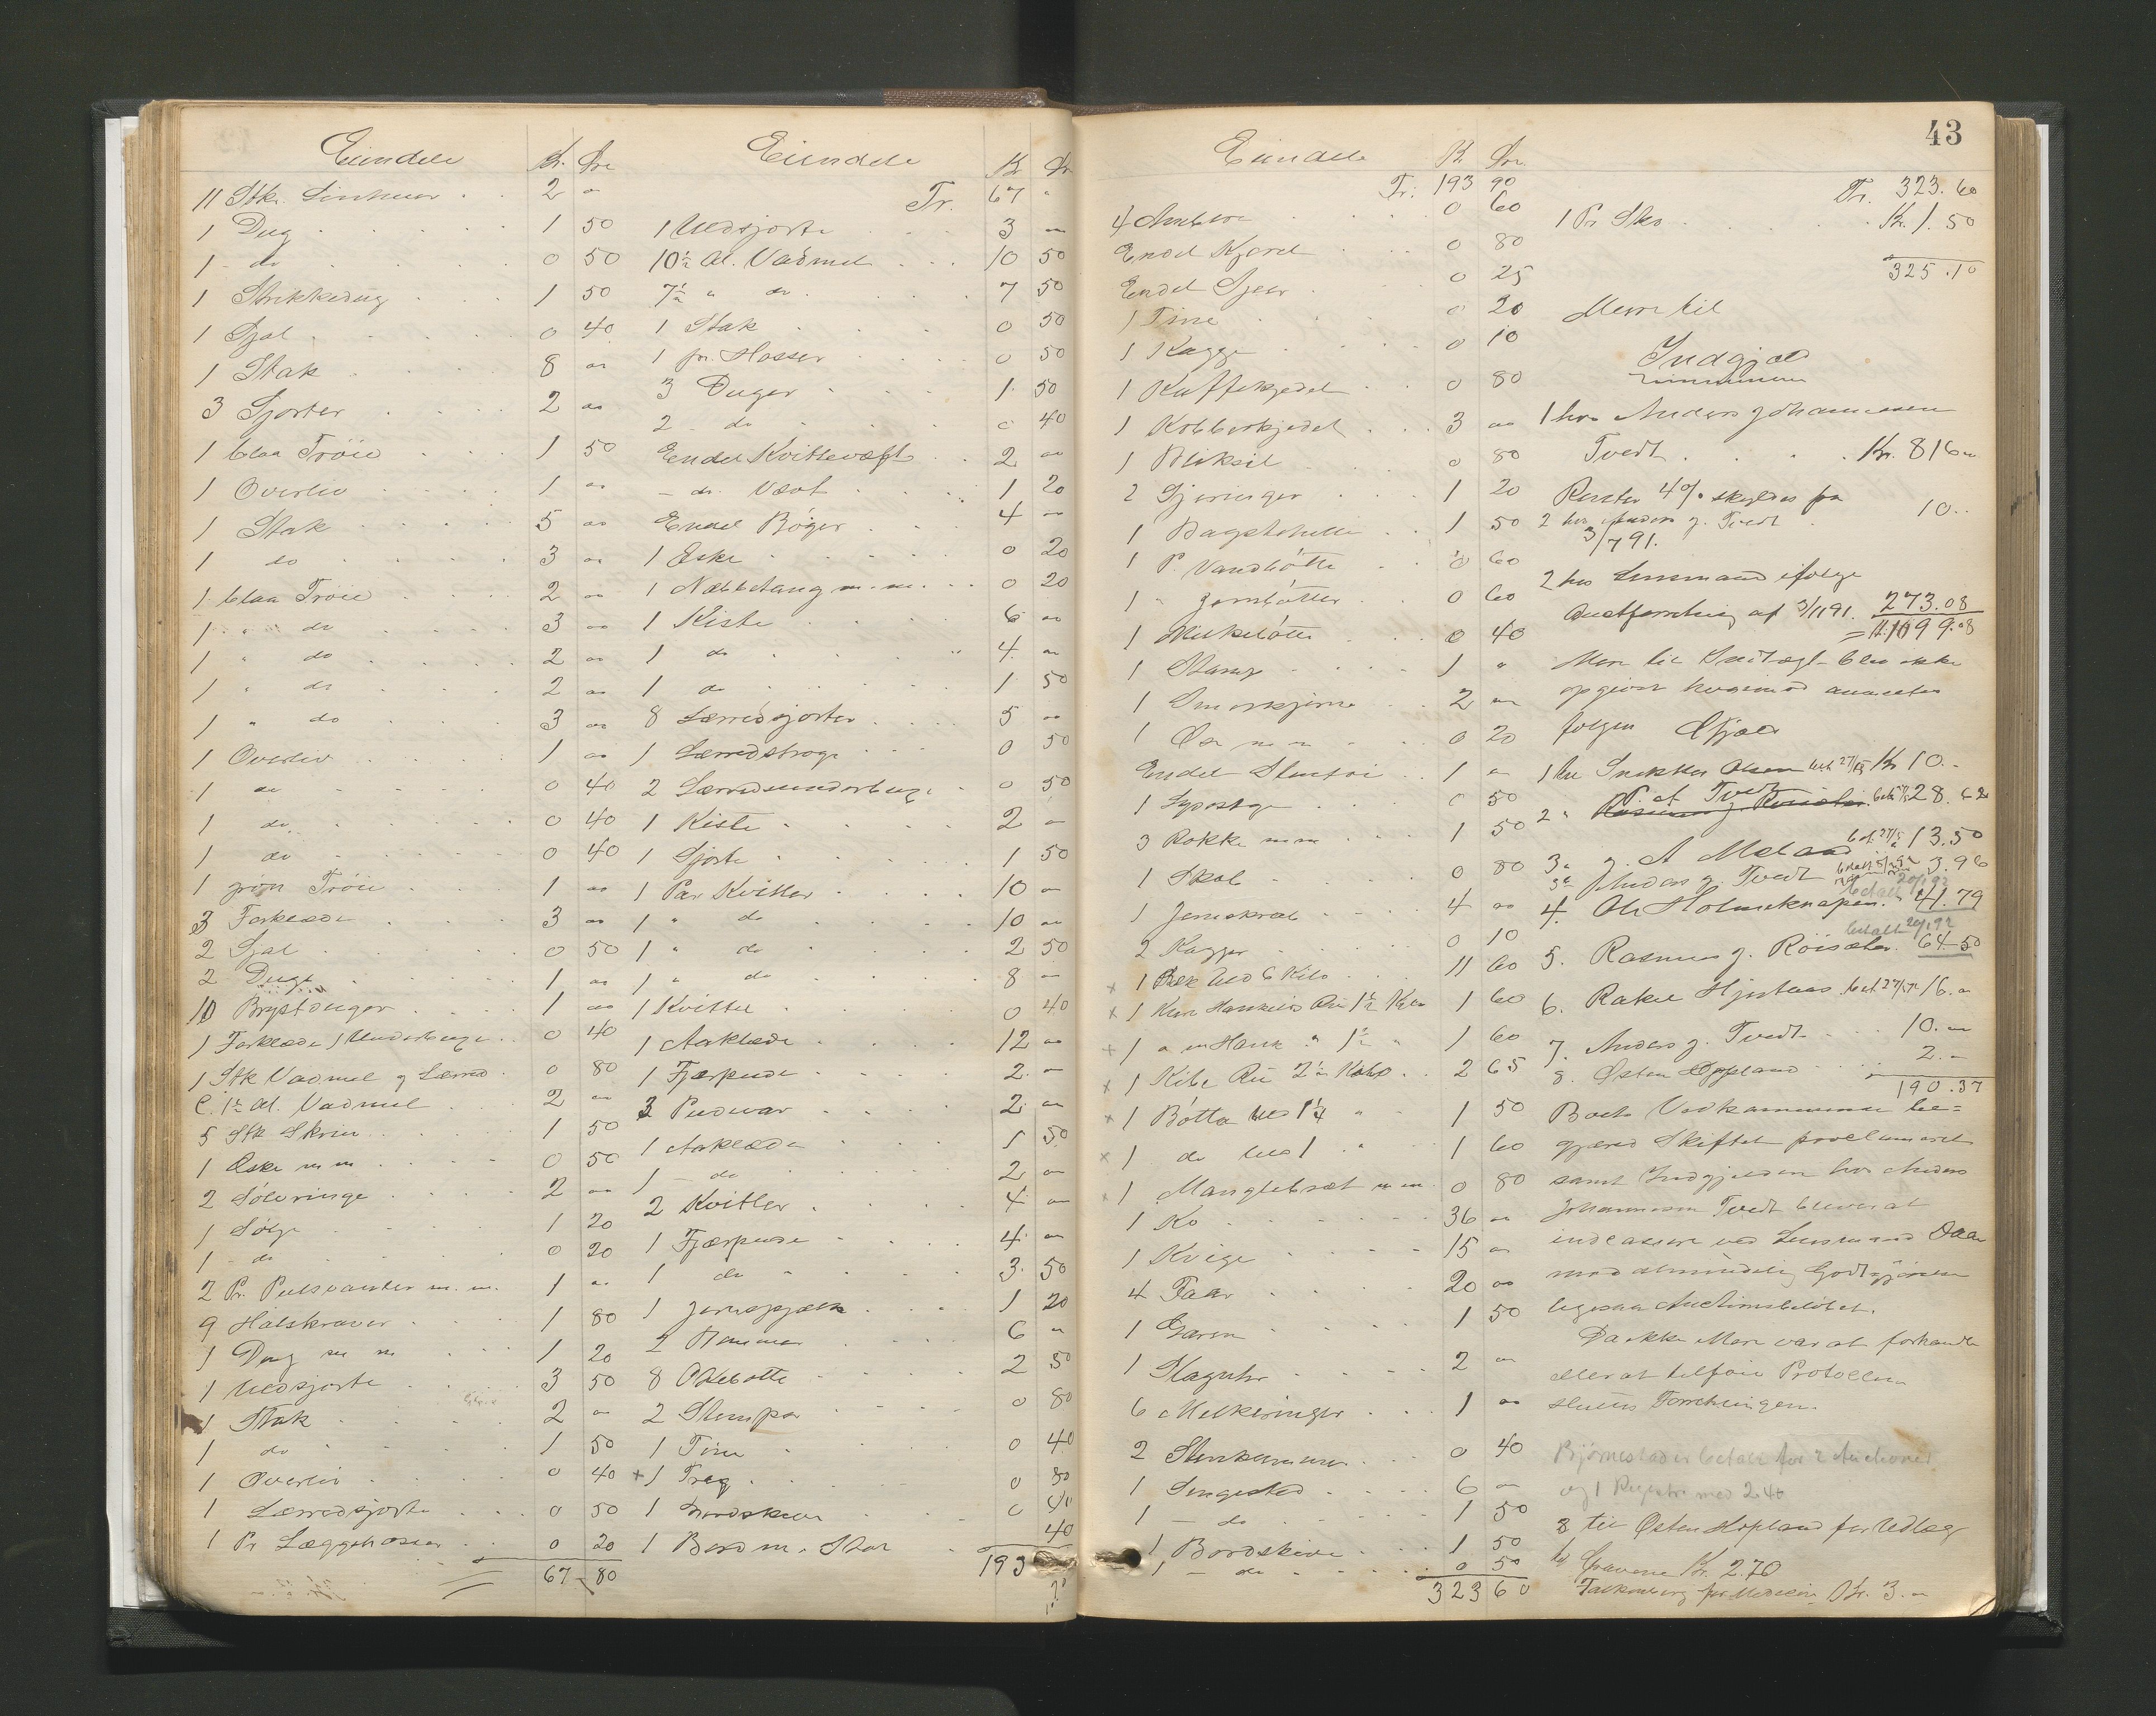 Eiendele Kr. Øre
11 Stk. 2 "
1 Dug 1 50
1 - do 0 50
1 Strikkedug 1 50
1 Sjal 0 40
1 Stak 8 "
3 Sjorter 2 "
1 blaa Trøie 1 50
1 Overliv 1 "
1 Stak 5 "
1 do 3 "
1 blaa Trøie 2 "
1 " do 3 "
1 " do 2 "
1 " do 2 "
1 " do 3 "
1 Overliv 1 "
1 do 0 40
1 do 0 40
1 do 0 40
1 grøn Trøie 1 "
3 Forklæde 3 "
2 Sjal 0 50
2 Duge 1 "
10 Brystduger 1 "
1 Forklæde 1 Underbuxe 0 40
1 Stk Vadmel og Lærred 0 80
C. 1½ Al. Vadmel 2 "
5 Stk Skrin 1 50
1 Æske m m 0 50
2 Sølvringe 2 "
1 Sølje 1 20
1 - do 0 20
2 Pr. Pulsvanter m. m. 1 "
9 Halskraver 1 80
1 Dug m m 1 20
1 Uldsjorte 3 50
1 Stak 2 "
1 do 1 50
1 Overliv 0 40
1 Lærredsjorte 0 50
1 Pr Læggehosser 0 20
67 - 80
Eiendele Kr Ør
Tr. 67 "
1 Uldsjorte 3 "
10½ Al. Vadmel 10 50
7½ " do 7 50
1 Stak 0 50
1 pr. Hosser 0 50
3 Duger 1 50
2 - do 0 40
Endel Kvittevæft 2 "
- do. Vævt 1 20
Endel Bøger 4 "
1 Eske 0 20
1 Nebbetang m. m. 0 20
1 Kiste 6 "
1 do 4 "
1 do 1 50
8 Lærredsjorter 5 "
1 0 50
2 Lærredsunderbuxe 0 50
1 Kiste 2 "
1 Sjorte 1 50
1 Par Kvitler 10 "
1 " do 10 "
1 " do 2 50
1 " do 8 "
1 Kvittel 0 40
1 Aaklæde 12 "
1 Fjærpude 2 "
3 Pudevar 2 "
1 Aaklæde 1 50
1 - do 2 "
2 Kvitler 4 "
1 Fjærpude 4 "
1 do 3 50
1 1 20
2 6 "
8 2 50
2 Stampar 0 80
1 Tine 0 40
+ 1 0 80
1 Bordskive 0 40
1 Bord m. Stol 40
193
43
Eiendele Kr Øre
Tr. 193 90
4 Ambere 0 60
Endel Kjørel 0 80
Endel 0 25
1 Tine 0 20
1 Kagge 0 10
1 Kaffekjedel 0 80
1 Kobberkjedel 3 "
1 Bliksil 0 80
2 1 20
1 Bagstehelle 1 50
1 P. Vandbøtte 0 60
1 " Jernbøtter 0 60
1 Melkebøtte 0 40
1 Stamp 1 "
1 Smørkjerne 2 "
1 Øse m m 0 20
Endel Stentøi 1 "
1 0 50
3 Rokke m m 1 50
1 Skab 0 80
1 4 "
2 Kagger 0 10
x 1 6 Kilo 11 60
x 1 1½ Kilo 1 60
+ 1 1½ " 1 60
x 1 2½ Kilo 2 65
x 1 Bøtta 1¼ " 1 50
x 1 do 1 " 1 60
1 Manglebræt m m 0 80
1 Ko 36 "
1 Kvige 15 "
4 Faar 20 "
1 Garn 1 50
1 Slaguhr 2 "
6 Melkeringer 1 "
2 Stenkummer 0 40
1 Sengested 6 "
1 - do 1 50
1 Bordskive 1 50
1 - do 0 50
323 60
Tr. 323.60
1 Pr Sko Kr. 1.50
325.10
Mere til
Indgjæld
1 hos Anders Johannessen
Tvedt Kr. 816 "
Renter 4% skyldes fra 10..
2 hos Anders J. Tvedt
3/7 91.
2 hos Lensmand ifølge
Auctforretning af 3/11 91. 273.08
= 1099.08
Mere til Indtægt blev ikke
opgivet hvorimod anmeldes
følgen Gjæld
1 bet 27/5 Kr 10.-
2 " P. A. Tvedt bet 28.62
3 " J. A. bet. 27/5 13.50
3a Anders J. Tvedt 3.96
betalt 20/1 92
4. Ole Holmeknapen 41.79
betalt 20/1 92
5. Rasmus J. Røisæter 64.50
6. Rakel bet 27/5 92 16.-
7. Anders J. Tvedt 10.-
8. Østen Opland 2.-
190.37
Boets Vedkommende be=
gjæred Skiftet proclameret
samt Indgjælden hos Anders
Johannesen Tvedt blever at
indcassere ved Lensmand
mod almindelig Godtgjørelse
ligesaa Auctionsbeløbet.
Da ikke Mere var at forhandle
eller at tilføie Protocollen
sluttes Forretningen.
Bjørnestad er betalt for 2 Auctioner
og 1 Registr. med 2.40
8 til Østen Hopland for Udlæg
Kr. 2.70
for Medicin Kr. 3.-